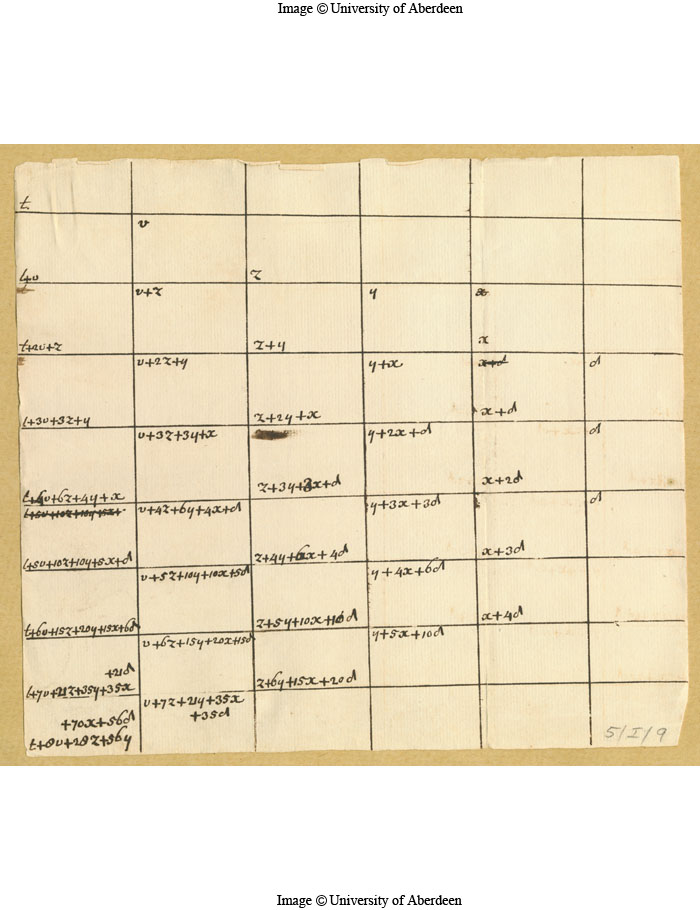 Image © University of Aberdeen
t
v
t+v
z
v+z
y
x
t+2v+z
z+y
x
v+2z+y
y+x
x+d
d
t+3v+3z+y
z+2y+x
x+d
v+3z+3y+x
y+2x+d
d
t+4v+6z+4y+x
z+3y+3x+d
x+2d
t+5v+10z+10y+5x+
v+4z+6y+4x+d
y+3x+3d
d
t+5v+10z+10y+5x+d
z+4y+6x+4d
x+3d
v+5z+10y+10x+5d
y+4x+6d
t+6v+15z+20y+15x+6d
z+5y+10x+10d
x+4d
v+6z+15y+20x+15d
y+5x+10d
+21d
t+7v+21z+35y+35x
z+6y+15x+20d
v+7z+21y+35x
+35d
+70x+56d
t+8v+28z+56y
5/I/9
Image © University of Aberdeen